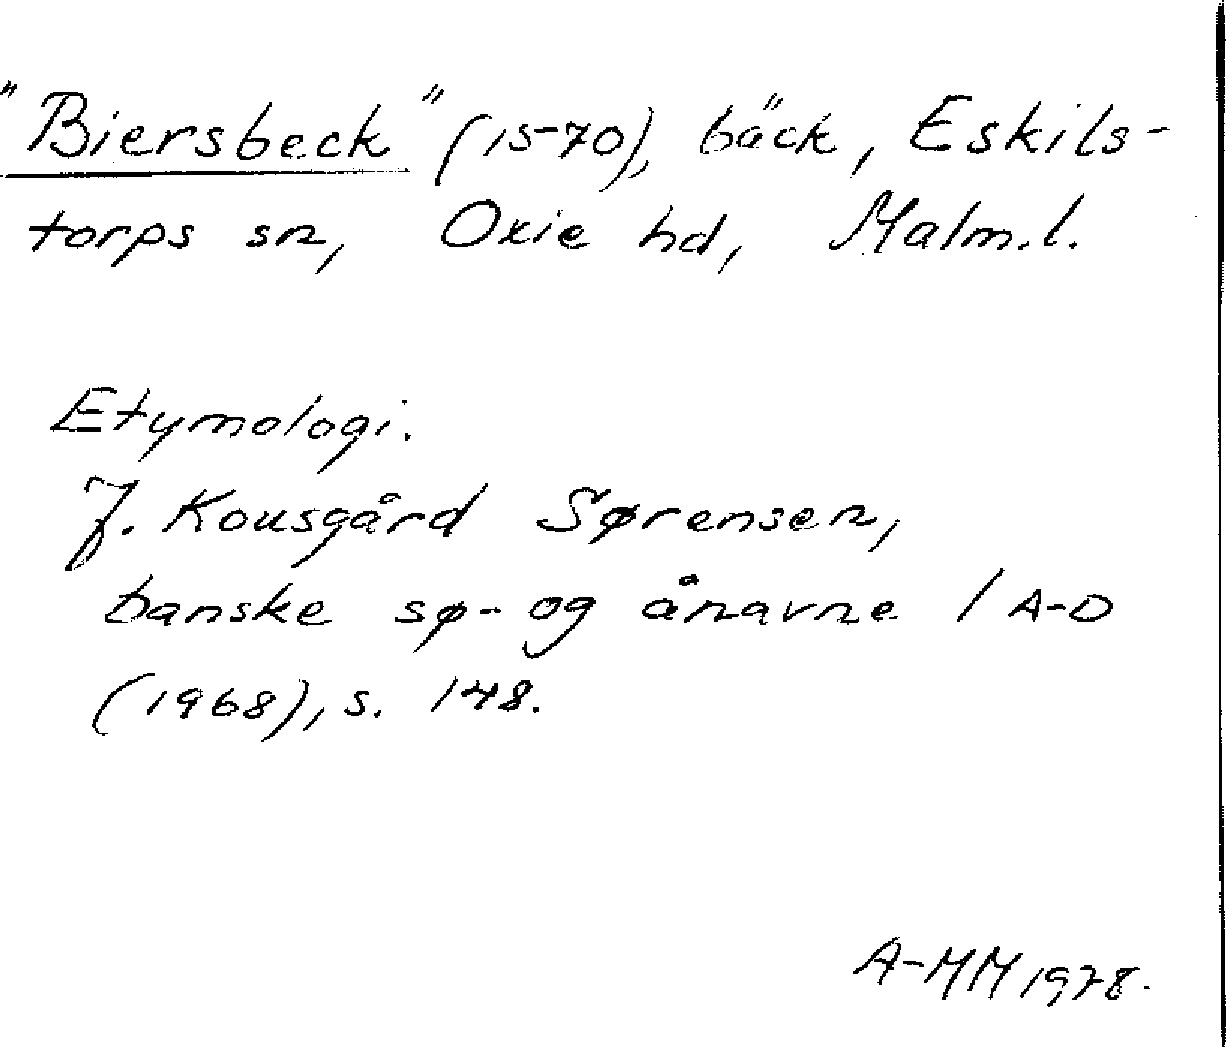 "Biersbeck" (1570), bäck, Eskils-
torps sn, Oxie hd, Malm.l.
Etymologi.
J. Kousgård Sørensen,
Danske sø- og ånavne 1 A-D
(1968), s. 148.
A-MM 1978.